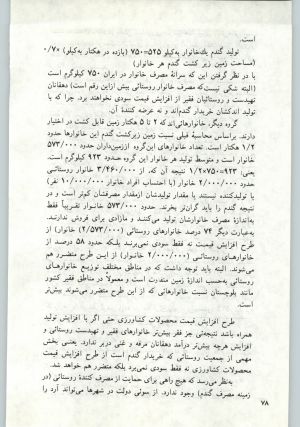 است.
تولید گندم یك‌خانوار به‌کیلو ۵۲۵=۷۵۰ (بازده در هکتار به‌کیلو) ×۰/۷
(مساحت زمین زیر کشت گندم هر خانوار)
با در نظر گرفتن این که سرانهٔ مصرف خانوار در ایران ۷۵۰ کیلوگرم است
(البته شکی نیست‌که مصرف خانوار روستائی بیش ازاین رقم است) دهقانان
تهیدست و روستائیان فقیر از افزایش قیمت سودی نخواهند برد. چرا که با
تولید اندکشان خریدار گندم‌اند و نه عرضه کنندهٔ آن.
گروه دیگر، خانوارهائی‌اند که ۲ تا ۵ هکتار زمین قابل کشت در اختیار
دارند. براساس محاسبهٔ قبلی نسبت زمین زیرکشت گندم این خانوارها حدود
۱/۲ هکتار است. تعداد خانوارهای این‌گروه ازمین‌داران حدود ۵۷۳/۰۰۰
خانوار است و متوسط تولید هر خانوار این گروه حدود ۹۲۳ کیلوگرم است.
یعنی: ۹۲۳=۷۵۰×۱/۲ نتیجه آن که، از ۳/۴۶۰/۰۰۰ خانوار روستائی
حدود ۲/۰۰۰/۰۰۰ خانوار (با احتساب افراد خانوار ۱۰/۰۰۰/۰۰۰ نفر)
یا تولیدکننده نیستند یا مقدار تولیدشان ازمقدار مصرفشان کمتر است و در
نتیجه گندم را باید گران‌تر بخرند. حدود ۵۷۳/۰۰۰ خانوار تقریباً فقط
به‌اندازهٔ مصرف خانوارشان تولید می‌کنند و مازادی برای فروش ندارند.
به‌عبارت دیگر ۷۴ درصد خانوارهای روستائی (۲/۵۷۳/۰۰۰ خانوار) از
طرح افزایش قیمت نه فقط سودی نمی‌برند بلکه حدود ۵۸ درصد از
خانوارهای روستائی (۲/۰۰۰/۰۰۰ خانوار) از این طرح متضرر هم
می‌شوند. البته باید توجه داشت که در مناطق مختلف توزیع خانوارهای
روستائی به‌حسب اندازهٔ زمین متفاوت است و معمولاً در مناطق فقیر کشور
مانند بلوچستان نسبت خانوارهائی که از این طرح متضرر می‌شوند بیش‌تر
است.
طرح افزایش قیمت محصولات کشاورزی حتی اگر با افزایش تولید
همراه باشد نتیجه‌ئی جز فقر بیش‌تر خانوارهای فقیر و تهیدست روستائی و
هرچه بیش‌تر درآمد دهقانان مرفه و غنی دربر ندارد. یعنی بخش
مهمی از جمعیت روستائی که خریدار گندم است از طرح افزایش قیمت
محصولات کشاورزی نه فقط سودی نمی‌برد بلکه متضرر هم خواهد شد.
به‌نظر می‌رسد که هیچ راهی برای حمایت از مصرف کنندهٔ روستائی (در
زمینه مصرف گندم) وجود ندارد. از سوئی دولت در شهرها می‌تواند آرد را
۷۸